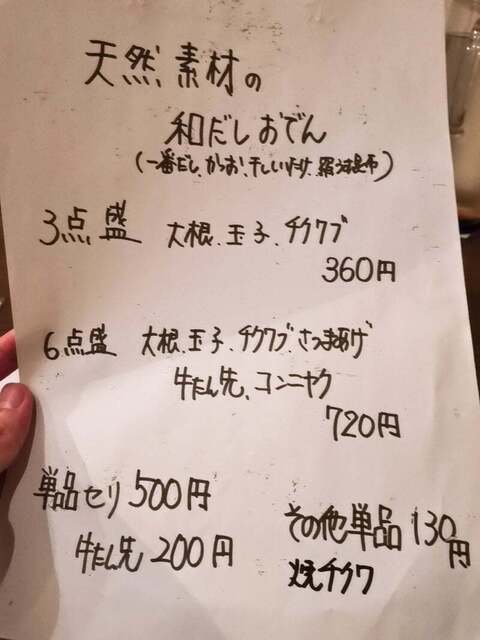 天然素材の
和だしおでん
(一番だし、かつお、干しいたけ、羅うす昆布)
3点盛 大根、玉子、チクワブ
360円
6点盛 大根、玉子、チクワブ、さつまあげ
牛たん先、コンニャク
720円
単品セリ500円
牛たん先200円
その他単品130円
焼チクワ